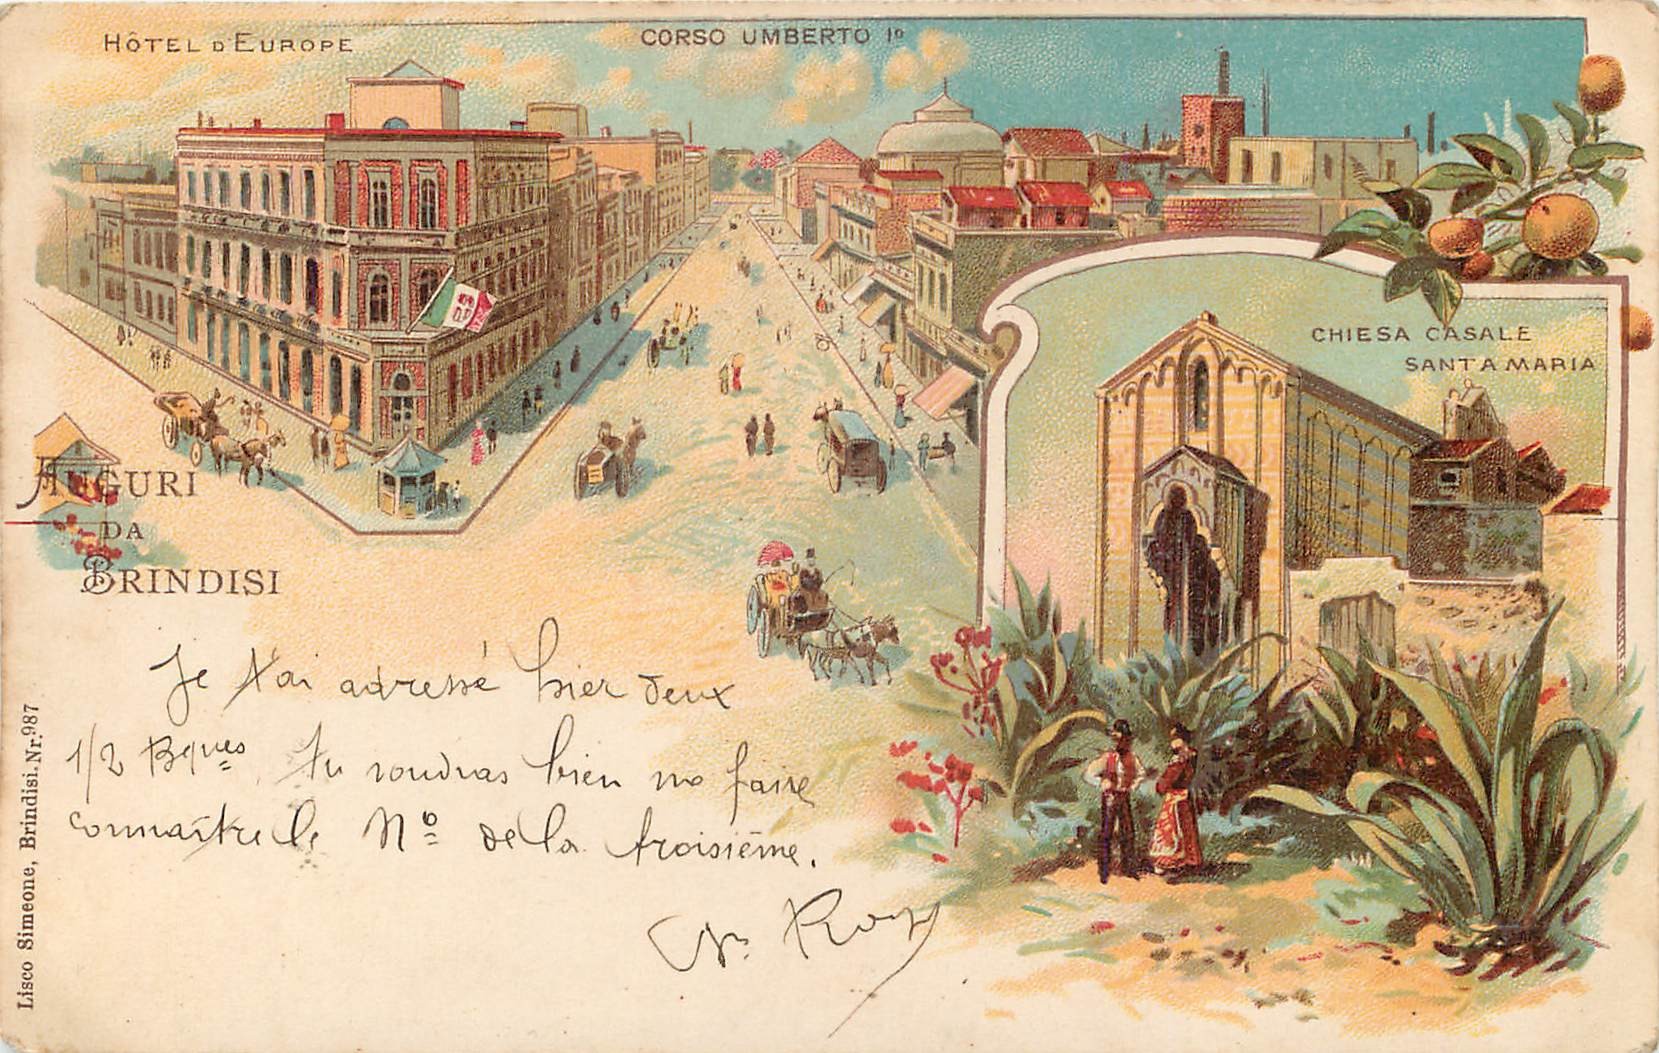 HÔTEL D'EUROPE
CORSO UMBERTO Iº
CHIESA CASALE
SANTA MARIA
AUGURI
DA
BRINDISI
Je t'ai adressé hier deux
1/2 Bques. Tu voudras bien me faire
connaître le Nº de la troisième.
Roy
Lisco Simeone, Brindisi. Nr. 987